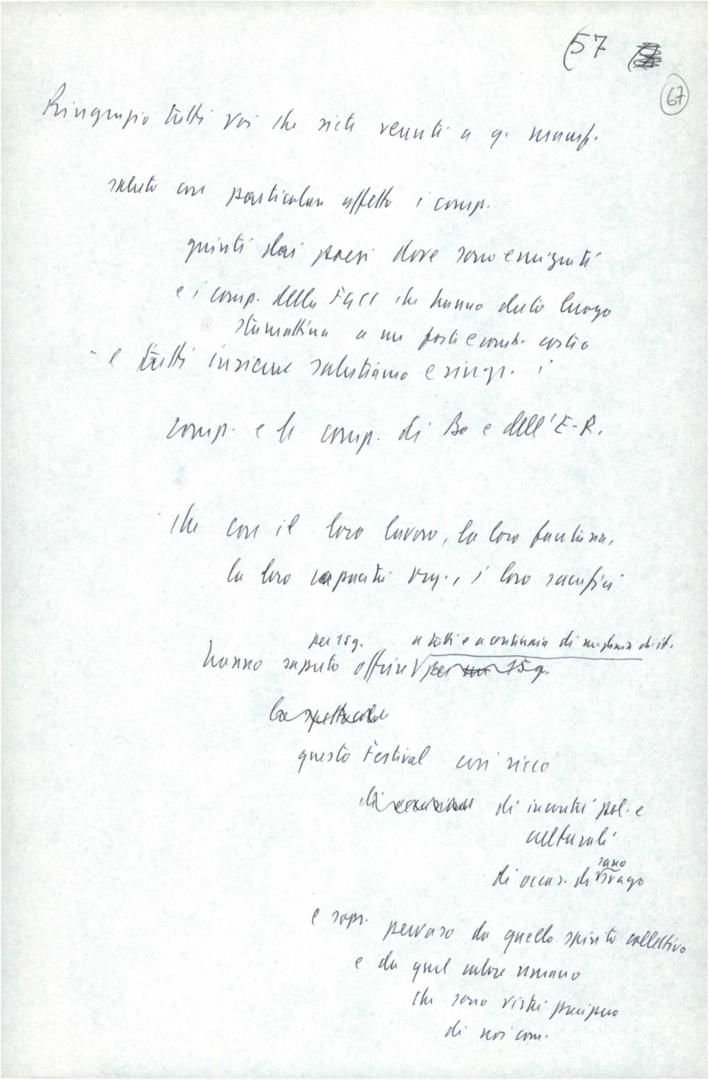 57
67
Ringrazio tutti voi che siete venuti a q. manif.
saluto con particolare affetto i comp.
giunti dai paesi dove sono emigrati
e i comp. della FGCI che hanno dato luogo
stamattina a un forte
- e tutti insieme salutiamo e ringr. i
comp. e le comp. di Bo e dell'E-R.
che con il loro lavoro, la loro fantasia,
la loro capacità org., i loro sacrifici
per 15 g. a tutti e a centinaia di migliaia di
hanno saputo offrire per 15 g.
lo spettacolo
questo Festival così ricco
di di incontri pol. e
culturali
sano
di occas. di svago
e sopr. pervaso da quello spirito collettivo
e da quel calore umano
che sono
di noi com.